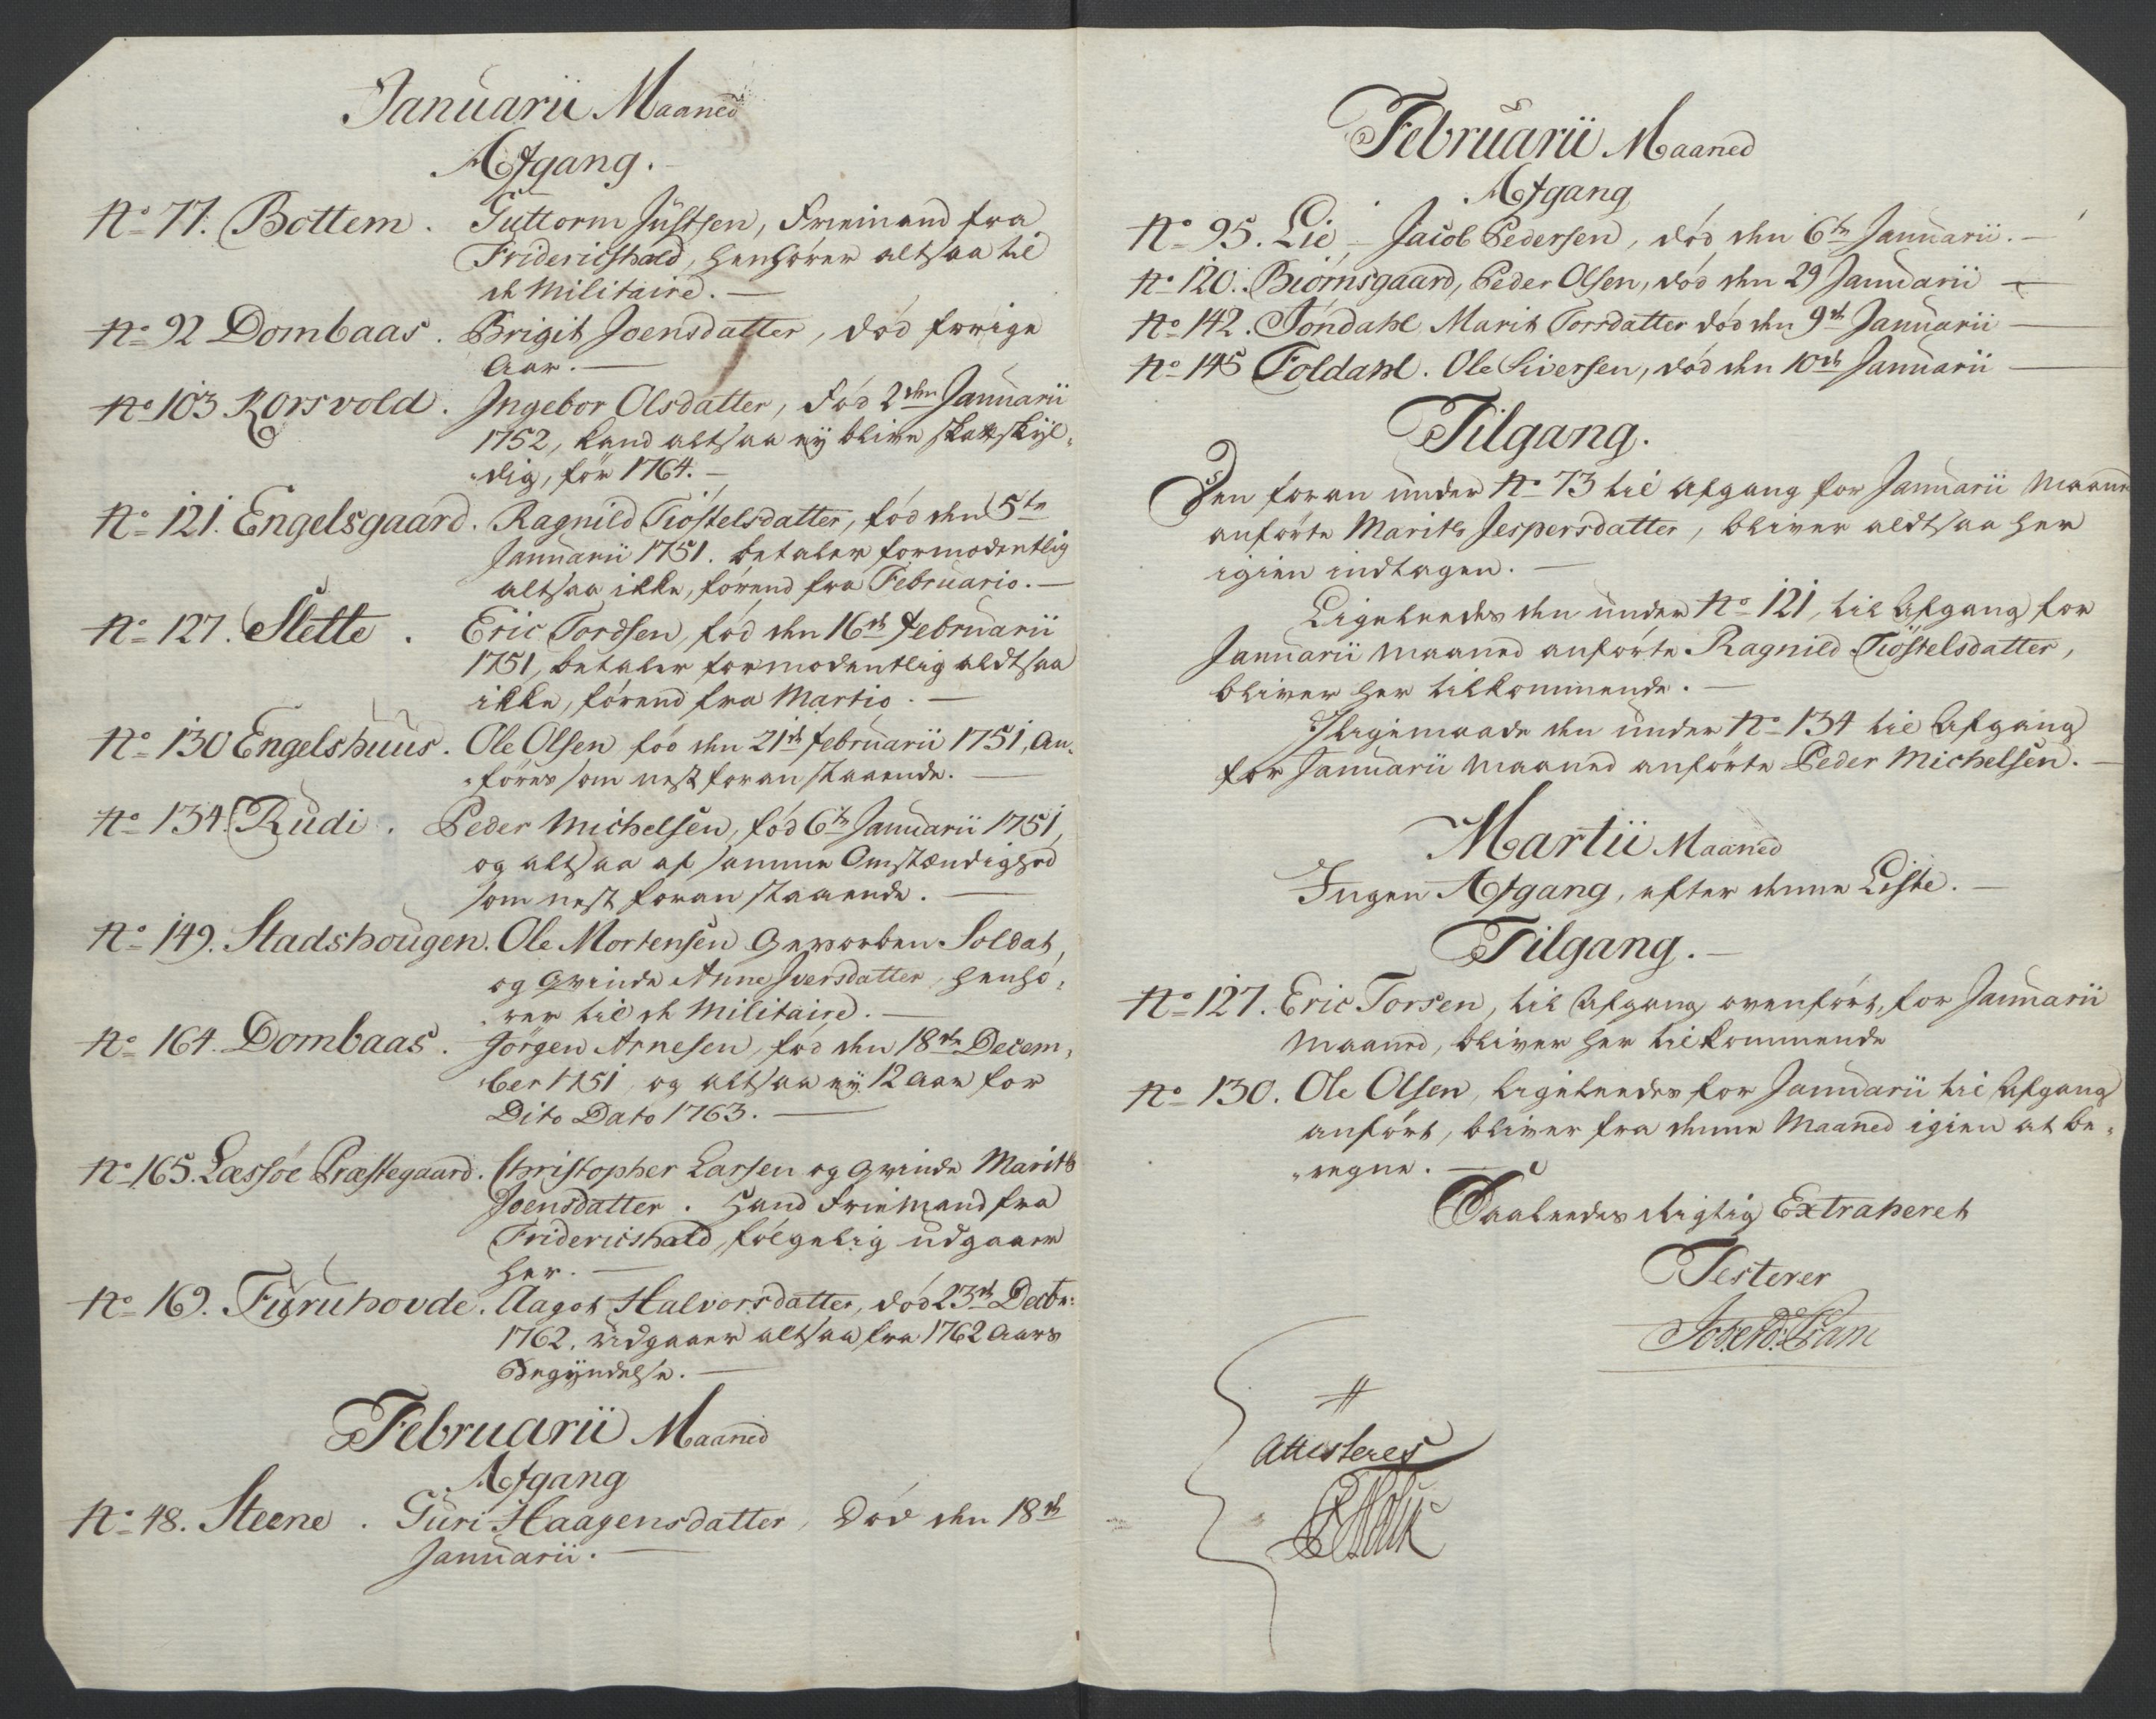 Januarii Maaned
Afgang.
No 77. Bottem. Guttorm Justsen, Friemand fra
Fridericshald, henhører altsaa til
de Militaire.
No 92 Dombaas. Brigit Joensdatter, død forige
Aar.
No 103 Korsvold. Ingebor Olsdatter, Fød 2den Januarii
1752, kand altsaa ey blive skatskyl-
dig, før 1764.
No 121. Engelsgaard. Ragnild Tiøstelsdatter, fød den 5te
Januarii 1751. betaler formodentlig
altsaa ikke, førend fra Februario.
No 127. Slette. Eric Tordsen, fød den 16de Februarii
1751, betaler formodentlig aldtsaa
ikke, førend fra Martio.
No 130 Engelshuus. Ole Olsen fød den 21de Februarii 1751, an-
føres som nest foranstaaende.
No 134. Rudi. Peder Michelsen, fød 6te Januarii 1751,
og altsaa af samme Omstændighed
som nest foranstaaende.
No 149. Stadshougen. Ole Mortensen Gevorben Soldat,
og Qvinde Anne Iversdatter, henhø-
rer til de Militaire.
No 164. Dombaas. Jørgen Arnesen, fød den 18de Decem-
ber 1751 og altsaa ey 12 Aar for
Dito Dato 1763.
No 165. Læssøe Præstegaard. Christopher Larsen og Qvinde Marith
Joensdatter. Hand Friemand fra
Fridericshald, følgelig udgaaer
her.
No 169. Furuhovde. Aagot Halvorsdatter, død 23de Decbr:
1762. udgaaer altsaa fra 1762 Aars
Begyndelse.
Februarii Maaned
Afgang
No 48. Steene. Guri Haagensdatter, Død den 18de
Januarii.
Februarii Maaned
Afgang
No 95. Lie, Jacob Pedersen, død den 6te Januarii.
No 120. Biørnsgaard, Peder Olsen, død den 29 Januarii
No 142. Jøndahl Marit Torsdatter død den 9de Januarii
No 145 Foldahl. Ole Siversen, død den 10de Januarii
Tilgang.
Den foran under No 73 til Afgang for Januarii Maaned
anførte Marith Jespersdatter, bliver aldtsaa her
igien indtagen.
Ligeleedes den under No 121, til Afgang for
Januarii Maaned anførte Ragnild Tiøstelsdatter,
bliver her tilkommende.
Ligemaade den under No 134 til Afgang
for Januarii Maaned anførte Peder Michelsen.
Martii Maaned
Ingen Afgang, efter denne Liste.
Tilgang.
No 127. Eric Torsen, til Afgang ovenført, for Januarii
Maaned, bliver her tilkommende
No 130. Ole Olsen, ligeleedes for Januarii til Afgang
anført, bliver fra denne Maaned igien at be-
regne.
Saaleedes rigtig Extraheret
Testerer
Attesteres